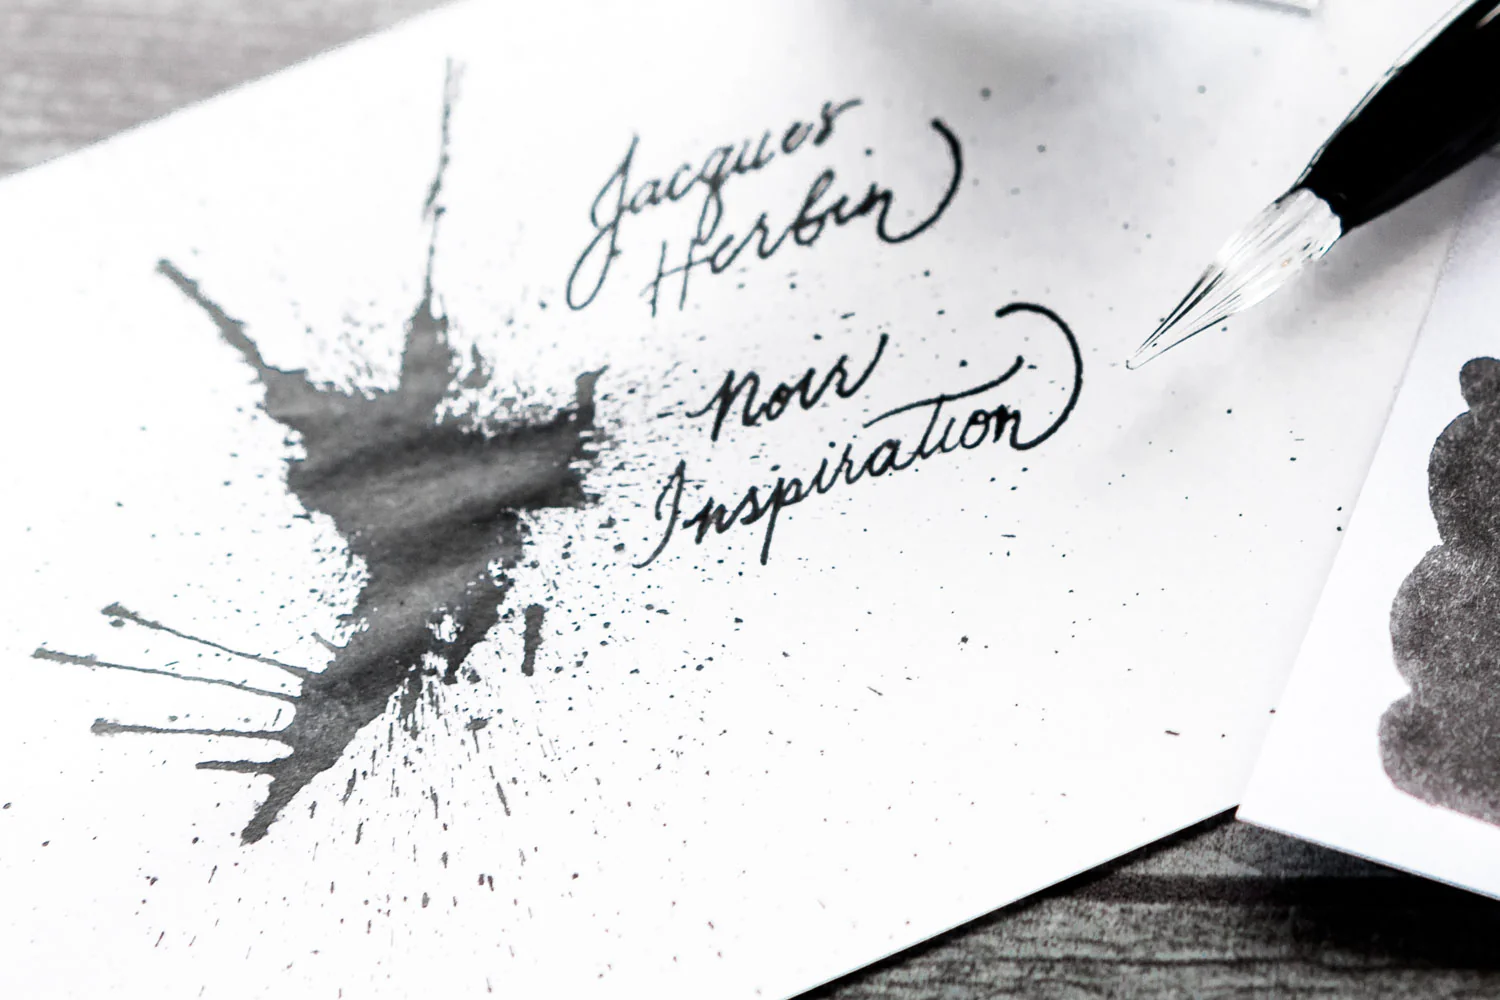 Jacques
Herbin
Noir
Inspiration